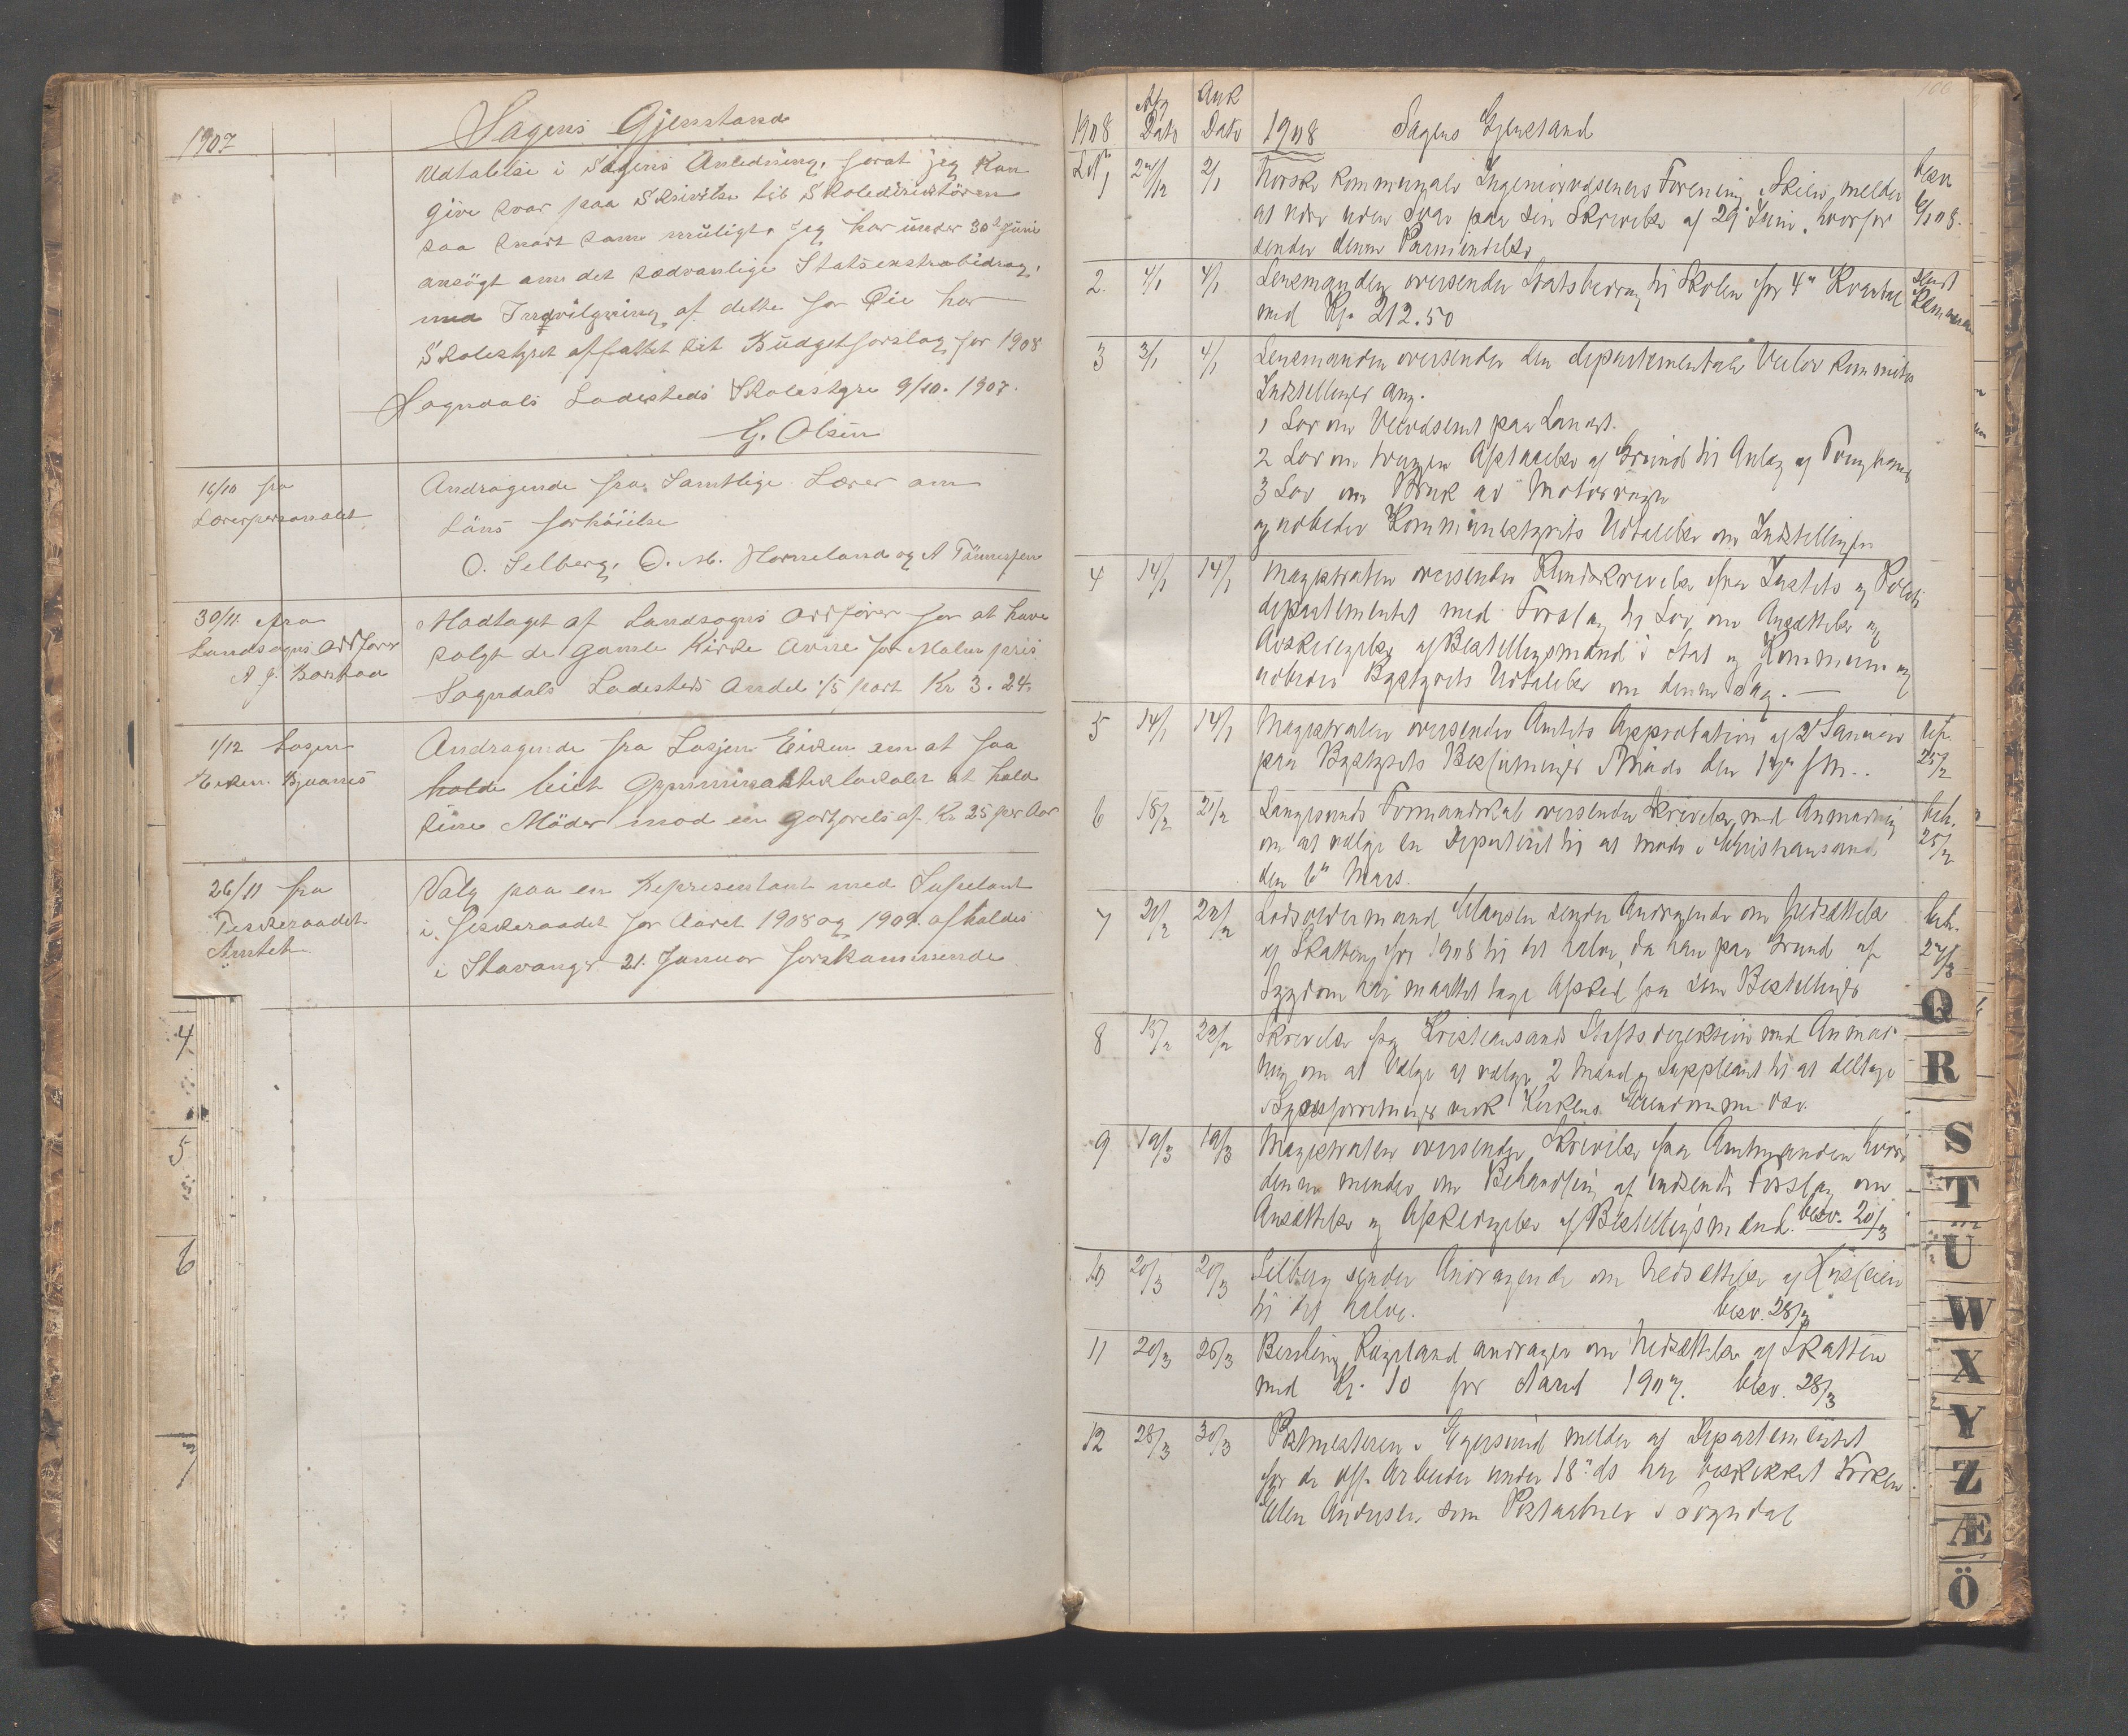 1907 Sagens Gjenstand
Udtalelse i Sagens Anledning, forat jeg kan
give svar paa Skrivelse til Skoledirektören
saa snart som muligt. Jeg har under 30te Juni
ansögt om det sædvanlige Statsextrabidrag,
med Indvilgning af dette for Öie har
Skolestyret affattet sit Budgetforslag for 1908
Sogndals Ladesteds Skolestyre 9/10. 1907.
G. Olsen
16/10 fra
Lærerpersonalet
Andragende fra Samtlige Lærer om
Löns forhöielse
O. Selberg, O. M. Horneland og A Tönnessen
30/11. fra
Landsogns Ordförer
A J.
Modtaget af Landsogns Ordförer for at have
solgt de gamle Kirke Ovne for Malm pris
Sogndals Ladesteds Andel 1/5 part Kr 3.24.
1/12 Logen
Eiken
Andragende fra Logjen Eiken om at faa
holde leiet Gymnastiklokalet at holde
sine Möder mod en af Kr 25 per Aar
26/11 fra
Fiskeraadet
Amtet
Valg paa en Representant med Suppleant
i Fiskeraadet for Aaret 1908 og 1909. afholdes
i Stavanger 21. Januar forskommende
4
5
6
7
106
1908 Afg Dato Ank Dato 1908 Sagens Gjenstand
1 2/1 Norske kommunale Ingeniørvæsenets Forening, Skien, melder
at være uden Svar paa sin Skrivelse af 29 Juni, hvorfor
sender denne
besv
6/1 08.
2. 4/1 4/1 Lensmanden oversender Statsbidrag til Skolen for 4de Kvartal
med Kr. 212.50
sendt
3 3/1 4/1 Lensmanden oversender den departementale Veilov kommites
Indstillinger ang.
1 Lov om Veivæsenet paa Landet.
2 Lov om tvungen Afstaaelse af Grund til Anlæg af
3 Lov om Bruk av Motorvogne
og udbeder Kommunestyrets Udtalelse om Indstillingen
4 14/1 14/1 Magistraten oversender Rundskrivelse fra Justits og Politi
departementet med Forslag til Lov om Ansættelse og
Avskedigelse af Bestillingsmænd i Stat og Kommune og
udbeder Bystyrets Udtalelse om denne Sag. —
5 14/1 14/1 Magistraten oversender Amtets Approbation af 2 Januar
paa Bystyrets Beslutninger i Møde den
25/2
6 18/2 21/2 Formandskab oversender Skrivelse med Anmodning
om at vælge en Deputeret til at møde i Kristiansand
den 6te Mars.
beh.
25/2
7 21/2 22/2 Lodsoldermand Clausen sender Andragende om Nedsættelse
af Skatten for 1908 til det halve, da han paa Grund af
Sygdom har maattet tage Afsked fra sine Bestillinger
beh.
27/3
8 15/2 22/2 Skrivelse fra Kristiansands Stiftsdirektion med Anmod-
ning om at Vælge at vælge 2 Mænd og Suppleant til at deltage
i Synsforretninger vedk Kirkens Eiendomme osv.
9 19/3 19/3 Magistraten oversender Skrivelse fra Amtmanden hvori
denne minder om Behandling af indsendt Forslag om
Ansættelse og Afskedigelse af Bestillingsmænd. besv. 20/3
10 20/3 20/3 Selberg sender Andragende om Nedsættelse af Husleien
til det halve. besv. 28/3
11 20/3 26/3 Rageland andrager om Nedsættelse af Skatten
med Kr. 10 for Aaret 1907. besv. 28/3
12 28/3 30/3 Postmesteren i Egersund melder at Departementet
for de off. Arbeider under 18de ds har beskikket Frøken
Elen Andersen som Postaabner i Sogndal
Q
R
S
T
U
W
X
Y
Z
Æ
Ö